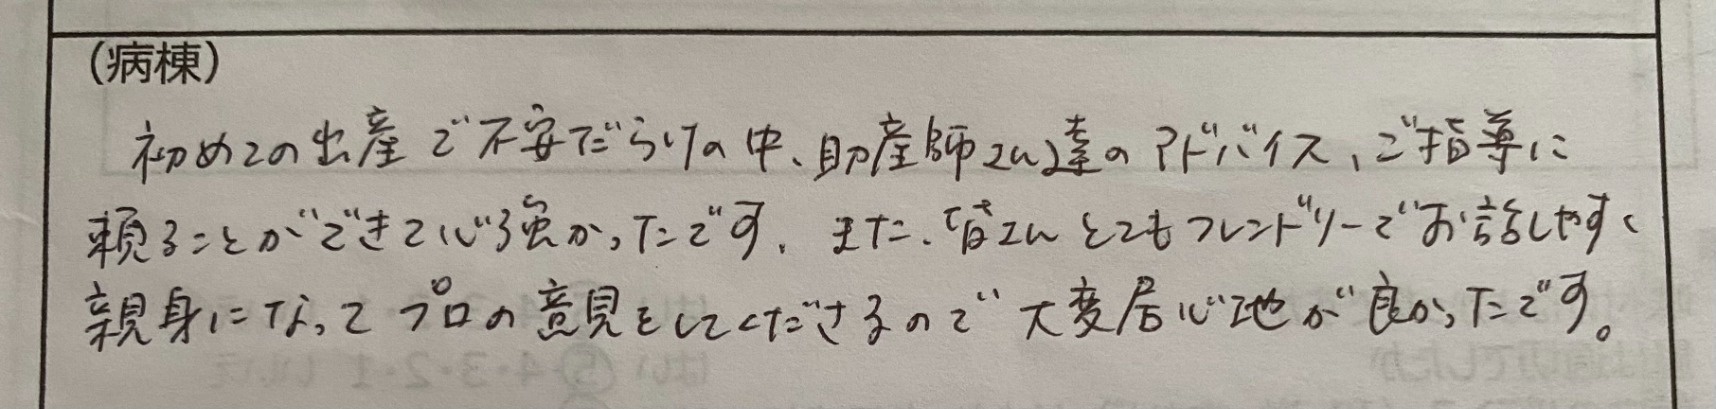 (病棟)
初めての出産で不安だらけの中、助産師さん達のアドバイス、ご指導に
頼ることができて心強かったです。また、皆さんとてもフレンドリーでお話しやすく
親身になってプロの意見をしてくださるので大変居心地が良かったです。